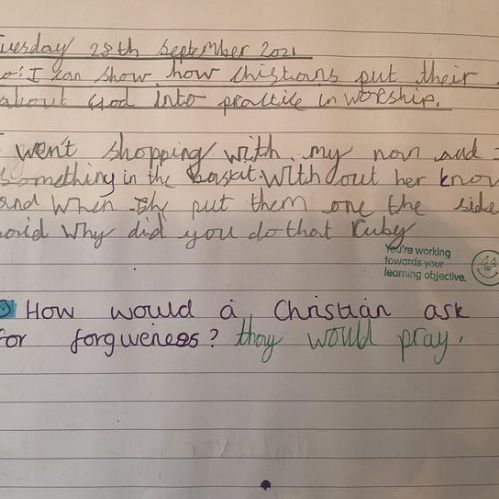 Tuesday 28th September 2021
LO: I can show how Chistians put their
about God into practice in worship.
I went shopping with my nan and I
something in the baskit With out her know
and when I put them one the side
said Why did you do that Ruby
You're working
towards your
learning objective.
How would a Christian ask
for forgiveness? they would pray.